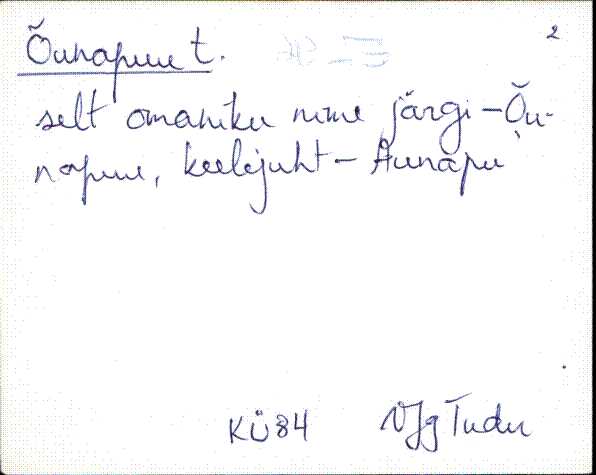 2
Õunapuu t.
selt omaniku nime järgi – Õu-
napuu, keelejuht – Aunapu
KÜ 84 VJg Tudu